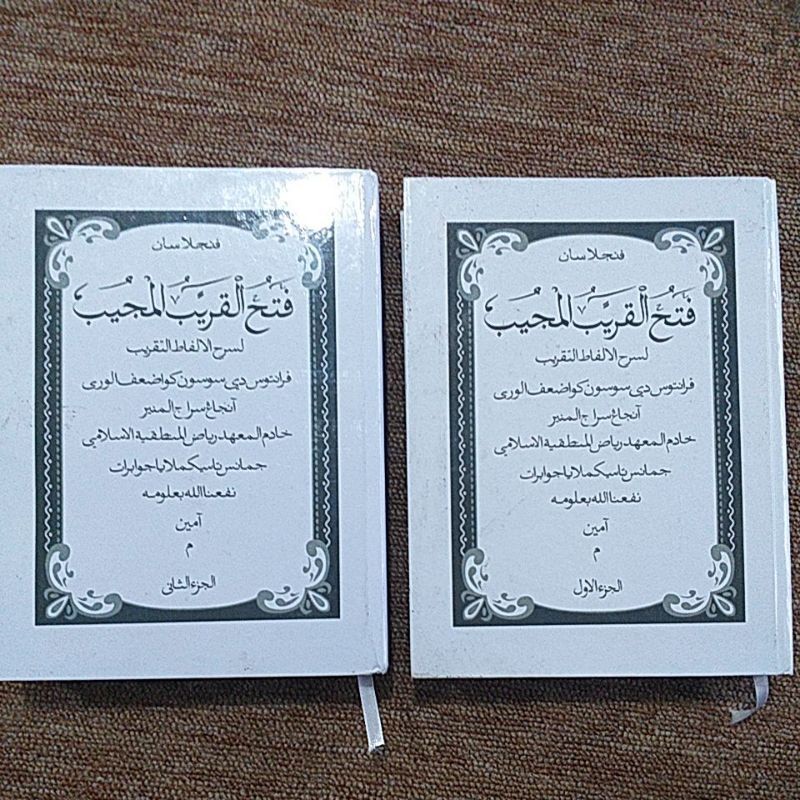 فنجلاسان
فَتْحُ الْقَرِيْبُ الْمُجِيْبُ
لسرح الالفاظ التقريب
فرانتوس دي سوسون كو اضعف الورى
آنجاغ سراج المنير
خادم المعهد رياض المنطقية الاسلامي
جمانس تاسيكملايا جوابرات
نفعنا الله بعلومه
آمين
م
الجزء الثانى
فنجلاسان
فَتْحُ الْقَرِيْبُ الْمُجِيْبُ
لسرح الالفاظ التقريب
فرانتوس دي سوسون كو اضعف الورى
آنجاغ سراج المنير
خادم المعهد رياض المنطقية الاسلامي
جمانس تاسيكملايا جوابرات
نفعنا الله بعلومه
آمين
م
الجزء الاول